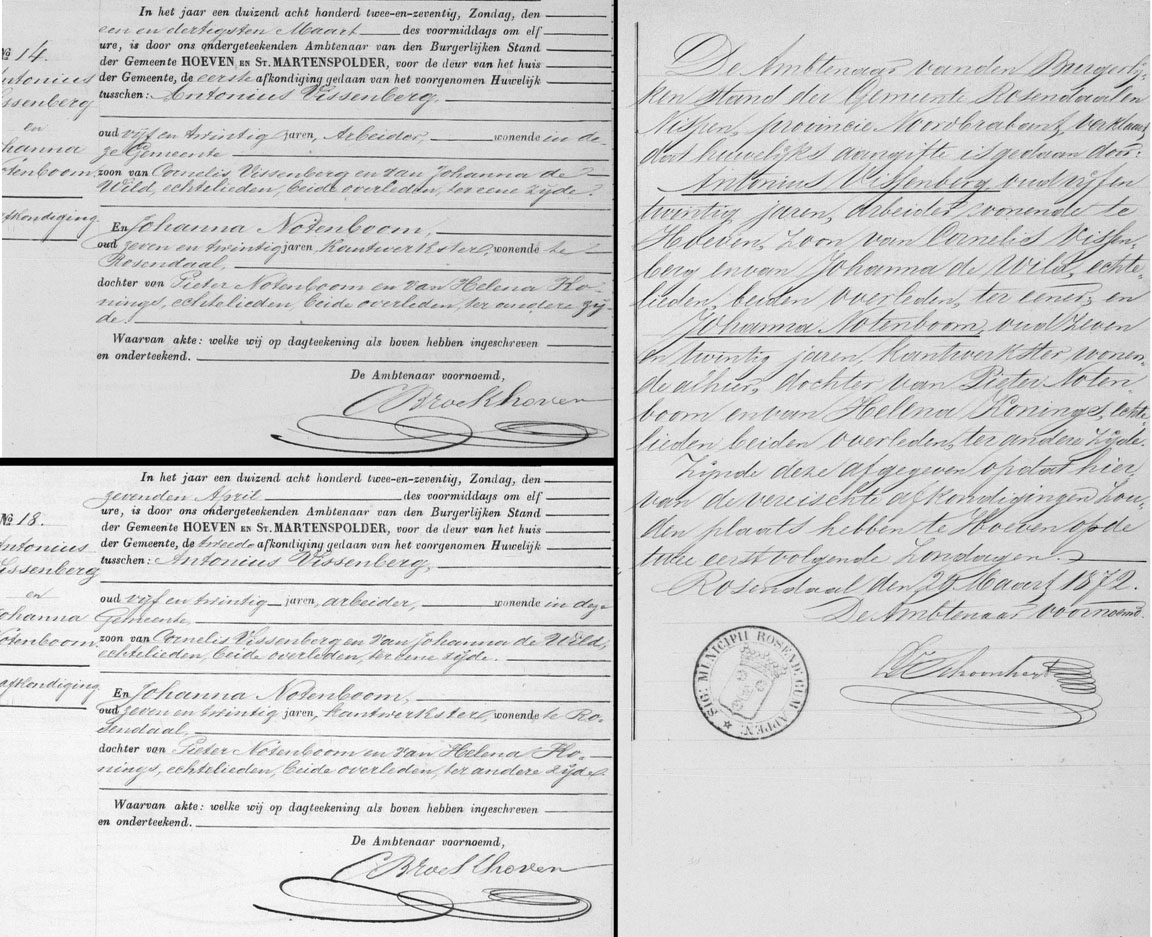 In het jaar een duizend acht honderd twee-en-zeventig, Zondag, den
een en dertigsten Maart des voormiddags om elf
ure, is door ons ondergeteekenden Ambtenaar van den Burgerlijken Stand
der Gemeente HOEVEN EN ST. MARTENSPOLDER, voor de deur van het huis
der Gemeente, de eerste afkondiging gedaan van het voorgenomen Huwelijk
tusschen: Antonius Vissenberg,
oud vijf en twintig jaren, Arbeider, wonende in de-
ze Gemeente
zoon van Cornelis Vissenberg en van Johanna de
Wild, echtelieden, beide overleden, ter eene zijde
En Johanna Notenboom,
oud zeven en twintig jaren, kantwerkster, wonende te
Rosendaal,
dochter van Pieter Notenboom en van Helena Ko-
nings, echtelieden, beide overleden, ter andere zij-
de.
Waarvan akte: welke wij op dagteekening als boven hebben ingeschreven
en onderteekend.
De Ambtenaar voornoemd,
CBroekhoven
No 14.
Antonius
Vissenberg
en
Johanna
Notenboom.
afkondiging
In het jaar een duizend acht honderd twee-en-zeventig, Zondag, den
zevenden April des voormiddags om elf
ure, is door ons ondergeteekenden Ambtenaar van den Burgerlijken Stand
der Gemeente HOEVEN EN ST. MARTENSPOLDER, voor de deur van het huis
der Gemeente, de tweede afkondiging gedaan van het voorgenomen Huwelijk
tusschen: Antonius Vissenberg,
oud vijf en twintig jaren, arbeider, wonende in deze
Gemeente,
zoon van Cornelis Vissenberg en van Johanna de Wild,
echtelieden, beide overleden, ter eene zijde.
En Johanna Notenboom,
oud zeven en twintig jaren, kantwerkster, wonende te Ro-
sendaal,
dochter van Pieter Notenboom en van Helena Ko-
nings, echtelieden, beide overleden, ter andere zijde.
Waarvan akte: welke wij op dagteekening als boven hebben ingeschreven
en onderteekend.
De Ambtenaar voornoemd,
CBroekhoven
No 18.
Antonius
Vissenberg
en
Johanna
Notenboom.
afkondiging
De Ambtenaar van den Burgerlij-
ken Stand der Gemeente Rosendaal en
Nispen, provincie Noordbrabant, verklaart
dat huwelijks aangifte is gedaan door:
Antonius Vissenberg oud vijf en
twintig jaren, arbeider, wonende te
Hoeven, zoon van Cornelis Vissen-
berg en van Johanna de Wild, echte-
lieden, beiden overleden, ter eener; en
Johanna Notenboom, oud zeven
en twintig jaren, kantwerkster wonen-
de alhier, dochter van Pieter Noten
boom en van Helena Konings, echte-
lieden beiden overleden, ter andere zijde.
Zijnde deze afgegeven opdat hier
van de vereischte afkondigingen zou-
den plaats hebben te Hoeven op de
twee eerstvolgende Zondagen.
Rosendaal den 25 Maart 1872.
De Ambtenaar voornoemd.
SIG: MUNICIPII ROSENDE CUM APPEN: